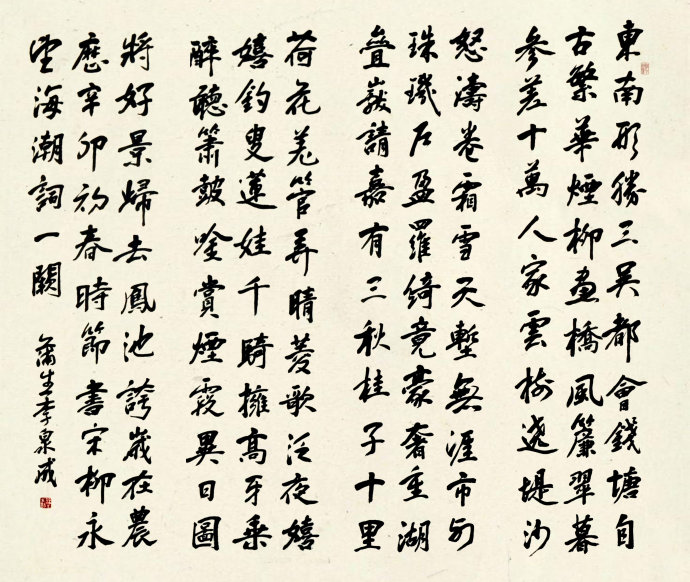 東南形勝三吳都會錢塘自
古繁華煙柳畫橋風簾翠幕
參差十萬人家雲樹遶堤沙
怒濤卷霜雪天塹無涯市列
珠璣戶盈羅綺竞豪奢重湖
疊巘清嘉有三秋桂子十里
荷花羌管弄晴菱歌泛夜嬉
嬉釣叟蓮娃千騎擁高牙乘
醉聽簫鼓吟賞煙霞異日圖
將好景歸去鳳池誇歲在農
歷辛卯初春時節書宋柳永
望海潮詞一闋 蒲生李泉成